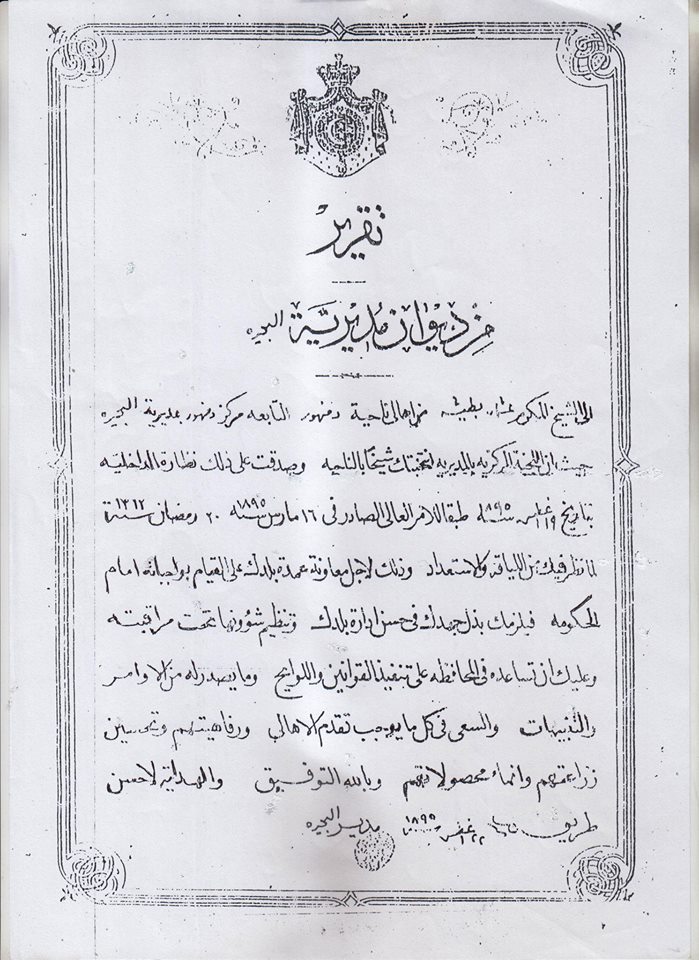 تقرير
من ديوان مديرية البحيره
الى الشيخ المكرم بطيشه من اهالى ناحية دمنهور التابعه مركز دمنهور بمديرية البحيره
حيث ان اللجنة المركزيه بالمديريه انتخبتك شيخا بالناحيه وصدقت على ذلك نظارة الداخليه
بتاريخ ١١٩غسطس سنة ٨٩٥ طبقا للامر العالى الصادر فى ١٦ مارس سنه ١٨٩٥ ٢٠ رمضان سنة ١٣١٢
لما ظهر فيك من اللياقه والاستعداد وذلك لاجل معاونة عمدة بلدك على القيام بواجباته امام
الحكومه فيلزمك بذل جهدك فى حسن ادارة بلدك وتنظيم شؤونها تحت مراقبته
وعليك ان تساعده فى المحافظه على تنفيذ القوانين واللوايح وما يصدر له من الاوامر
والتنبيهات والسعى فى كل ما يوجب تقدم الاهالي ورفاهيتهم وتحسين
زراعتهم وانماء محصولاتهم وبالله التوفيق والهداية لاحسن
طريق ٢٢ اغسطس ١٨٩٥ مدير البحيره